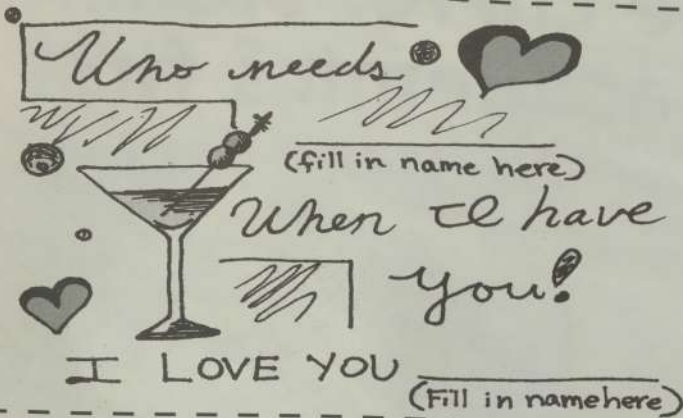 Who needs
(fill in name here)
When I have
you!
I LOVE YOU
(Fill in name here)